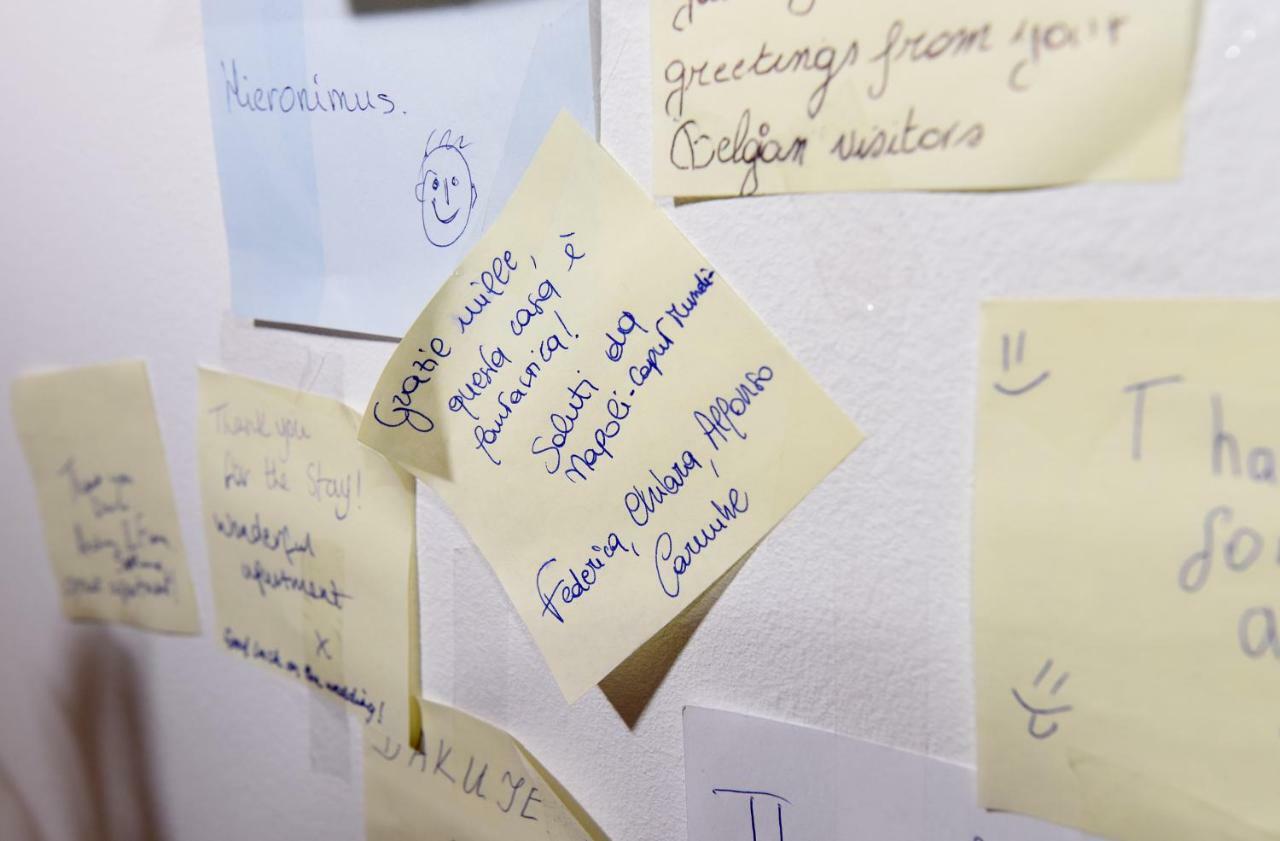 Hieronimus.
greetings from your
Belgian visitors
Grazie mille,
questa casa è
fantastica!
Saluti da
Napoli-Caput Mundi-
Federica, Chiara, Alfonso
Carmine
Thank you
for the stay!
Wonderful
apartment
X
Good luck on the wedding!
Thank you
apartment!
ĎAKUJE
Tha
fo
a